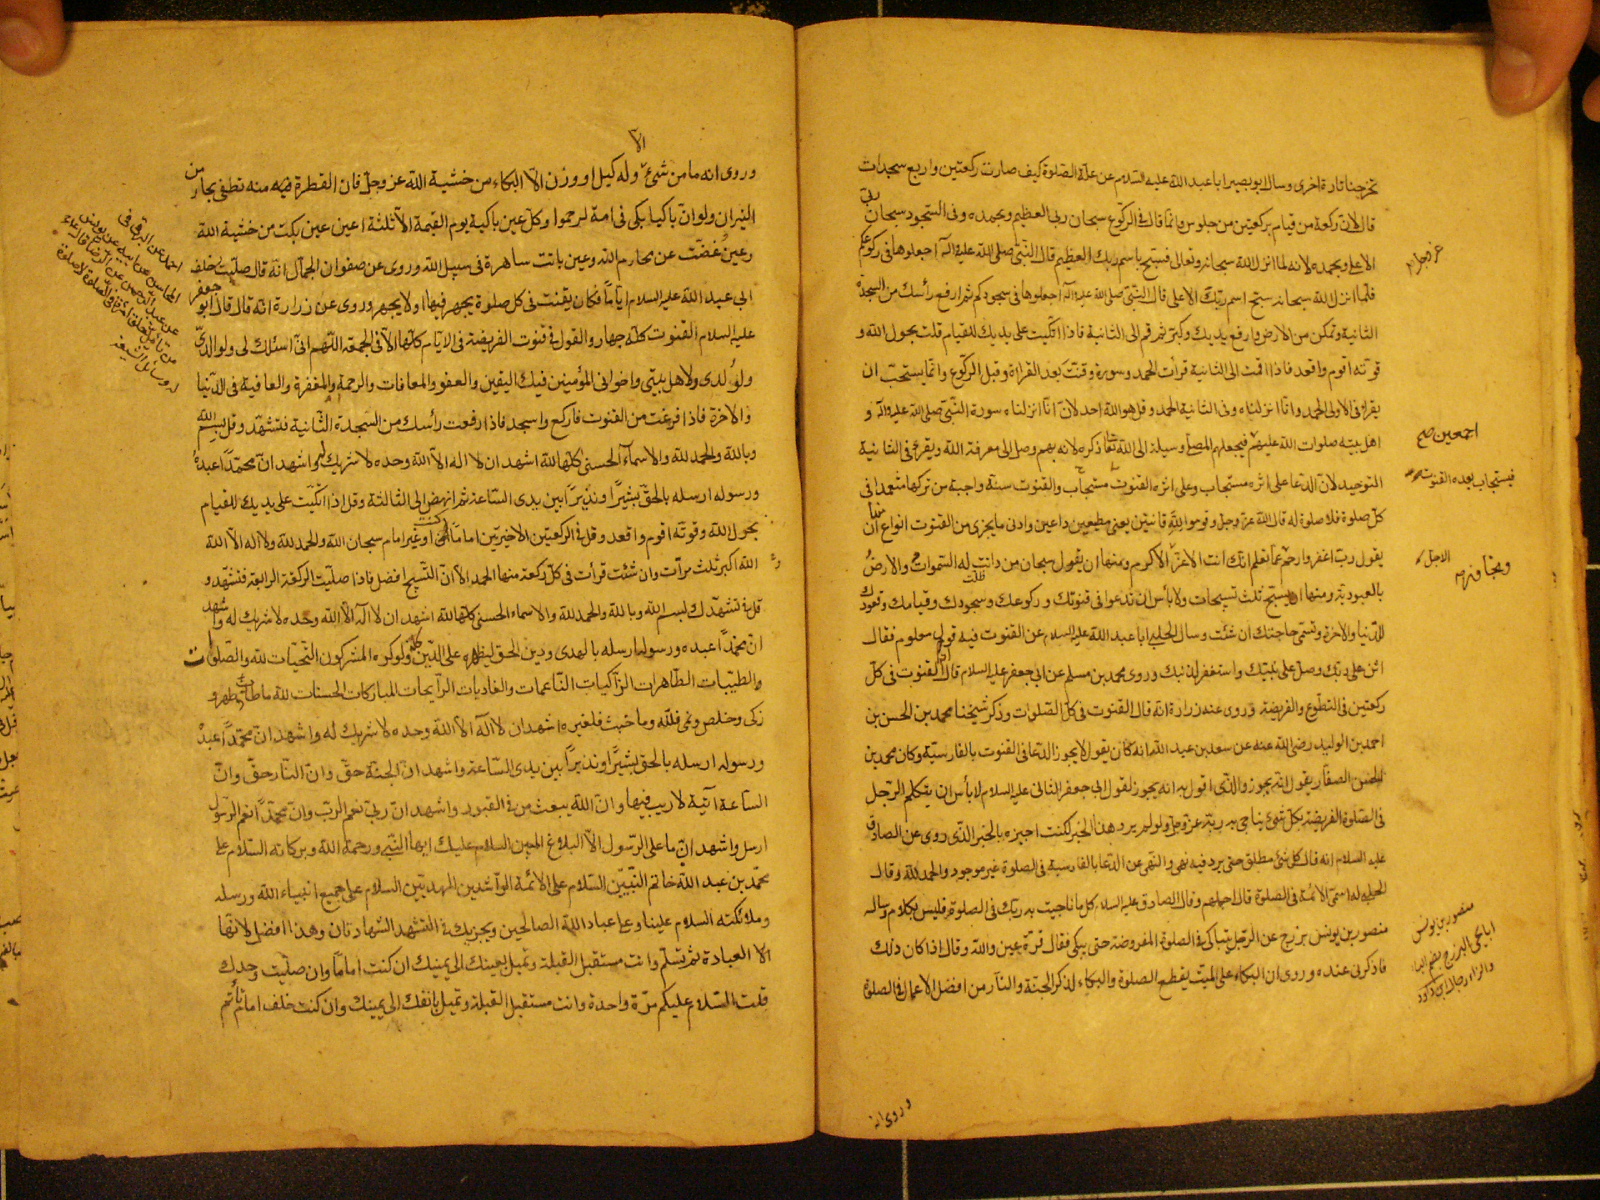 تخرجنا تارة اخرى وسال ابو بصير ابا عبد الله عليه السلام عن علة الصلوة كيف صارت ركعتين واربع سجدات
قال لان ركعة من قيام بركعتين من جلوس وانما قال في الركوع سبحان ربي العظيم وبحمده وفي السجود سبحان ربي
الاعلى وبحمده لانه لما انزل الله سبحانه وتعالى فسبح باسم ربك العظيم قال النبي صلى الله عليه وآله اجعلوها في ركوعكم
فلما انزل الله سبحانه سبح اسم ربك الاعلى قال النبي صلى الله عليه وآله اجعلوها في سجودكم ثم ارفع رأسك من السجدة
الثانية وتمكن من الارض وارفع يديك وكبر ثم قم الى الثانية فاذا اتكيت على يديك للقيام قلت بحول الله و
قوته اقوم واقعد فاذا قمت الى الثانية قرأت الحمد وسورة وقنت بعد القراءة وقبل الركوع وانما يستحب ان
يقرأ في الاولى الحمد وانا انزلناه وفي الثانية الحمد وقل هو الله احد لان انا انزلناه سورة النبي صلى الله عليه وآله و
اهل بيته صلوات الله عليهم فيجعلهم المصلي وسيلة الى الله تعالى ذكره لانه بهم وصل الى معرفة الله ويقرء في الثانية
التوحيد لان الدعا على اثره مستجاب وعلى اثره القنوت مستجاب والقنوت سنة واجبة من تركها متعمدا في
كل صلوة فلا صلوة له قال الله عز وجل وقوموا لله قانتين يعني مطيعين داعين وادنى ما يجزى من القنوت انواع منها ان
يقول رب اغفر وارحم وتجاوز عما تعلم انك انت الاعز الاكرم ومنها ان يقول سبحان من دانت له السموات والارض
بالعبودية ومنها ان يسبح ثلث تسبيحات ولا بأس ان تدعو في قنوتك وركوعك وسجودك وقيامك وقعودك
للدنيا والاخرة وتسمي حاجتك ان شئت وسال الحلبي ابا عبد الله عليه السلام عن القنوت فيه قول معلوم فقال
اثن على ربك وصل على نبيك واستغفر لذنبك وروى محمد بن مسلم عن ابي جعفر عليه السلام قال القنوت في كل
ركعتين في التطوع والفريضة وروى عنه زرارة انه قال القنوت في كل الصلوات وذكر شيخنا محمد بن الحسن بن
احمد بن الوليد رضي الله عنه عن سعد بن عبد الله انه كان يقول لا يجوز الدعا في القنوت بالفارسية وكان محمد بن
الحسن الصفار يقول انه يجوز والذي اقول به انه يجوز لقول ابي جعفر الثاني عليه السلام لا بأس ان يتكلم الرجل
في الصلوة الفريضة بكل شئ يناجي به ربه عز وجل ولو لم يرد هذا الخبر لكنت اجيزه بالخبر الذي روى عن الصادق
عليه السلام انه قال كل شئ مطلق حتى يرد فيه نهي والنهي عن الدعا بالفارسية في الصلوة غير موجود والحمد لله وقال
الحلبي له اسمي الائمة في الصلوة قال اجملهم وقال الصادق عليه السلام كل ما ناجيت به ربك في الصلوة فليس بكلام وساله
منصور بن يونس بزرج عن الرجل يتباكى في الصلوة المفروضة حتى يبكي فقال قرة عين والله وقال اذا كان ذلك
فاذكرني عنده وروى ان البكاء على الميت يقطع الصلوة والبكاء لذكر الجنة والنار من افضل الاعمال في الصلوة
وروى انه
اجمعين صح
فيستجاب بعده القنوت
وتجاوز
الاجل
منصور بن يونس
وروى انه ما من شئ الا وله كيل او وزن الا البكاء من خشية الله عز وجل فان القطرة منه تطفئ بحار من
النيران ولو ان باكيا بكى في امة لرحموا وكل عين باكية يوم القيمة الا ثلثة اعين عين بكت من خشية الله
وعين غضت عن محارم الله وعين باتت ساهرة في سبيل الله وروى عن صفوان الجمال انه قال صليت خلف
ابي عبد الله عليه السلام اياما فكان يقنت في كل صلوة يجهر فيها او لا يجهر وروى عن زرارة انه قال قال ابو جعفر
عليه السلام القنوت كله جهار والقول في قنوت الفريضة في الايام كلها الا في الجمعة اللهم اني اسئلك لي ولوالدي
ولولدي ولاهل بيتي واخواني المؤمنين فيك اليقين والعفو والمعافات والرحمة والمغفرة والعافية في الدنيا
والاخرة فاذا فرغت من القنوت فاركع واسجد فاذا رفعت رأسك من السجدة الثانية فتشهد وقل بسم الله
وبالله والحمد لله والاسماء الحسنى كلها لله اشهد ان لا اله الا الله وحده لا شريك له واشهد ان محمدا عبده
ورسوله ارسله بالحق بشيرا ونذيرا بين يدى الساعة ثم انهض الى الثالثة وقل اذا اتكيت على يديك للقيام
بحول الله وقوته اقوم واقعد وقل في الركعتين الاخيرتين اماما كنت او غير امام سبحان الله والحمد لله ولا اله الا الله
والله اكبر ثلث مرأت وان شئت قرأت في كل ركعة منها الحمد الا ان التسبيح افضل فاذا صليت الركعة الرابعة فتشهد و
قل في تشهدك بسم الله وبالله والحمد لله والاسماء الحسنى كلها لله اشهد ان لا اله الا الله وحده لا شريك له واشهد
ان محمدا عبده ورسوله ارسله بالهدى ودين الحق ليظهره على الدين كله ولو كره المشركون التحيات لله والصلوات
والطيبات الطاهرات الزاكيات الناعمات والغاديات الرايحات المباركات الحسنات لله ما طاب وطهر و
زكى وخلص ونمى فلله وما خبث فلغيره اشهد ان لا اله الا الله وحده لا شريك له واشهد ان محمدا عبده
ورسوله ارسله بالحق بشيرا ونذيرا بين يدى الساعة واشهد ان الجنة حق وان النار حق وان
الساعة آتية لا ريب فيها وان الله يبعث من في القبور واشهد ان ربي نعم الرب وان محمدا نعم الرسول
ارسل واشهد ان ما على الرسول الا البلاغ المبين السلام عليك ايها النبي ورحمة الله وبركاته السلام على
محمد بن عبد الله خاتم النبيين السلام على الائمة الراشدين المهديين السلام على جميع انبياء الله ورسله
وملائكته السلام علينا وعلى عباد الله الصالحين ويجزيك في التشهد الشهادتان وهذا افضل لانها
العبادة ثم تسلم وانت مستقبل القبلة وتميل بعينك الى يمينك ان كنت اماما وان صليت وحدك
قلت السلام عليكم مرة واحدة وانت مستقبل القبلة وتميل بانفك الى يمينك وان كنت خلف امام تأتم